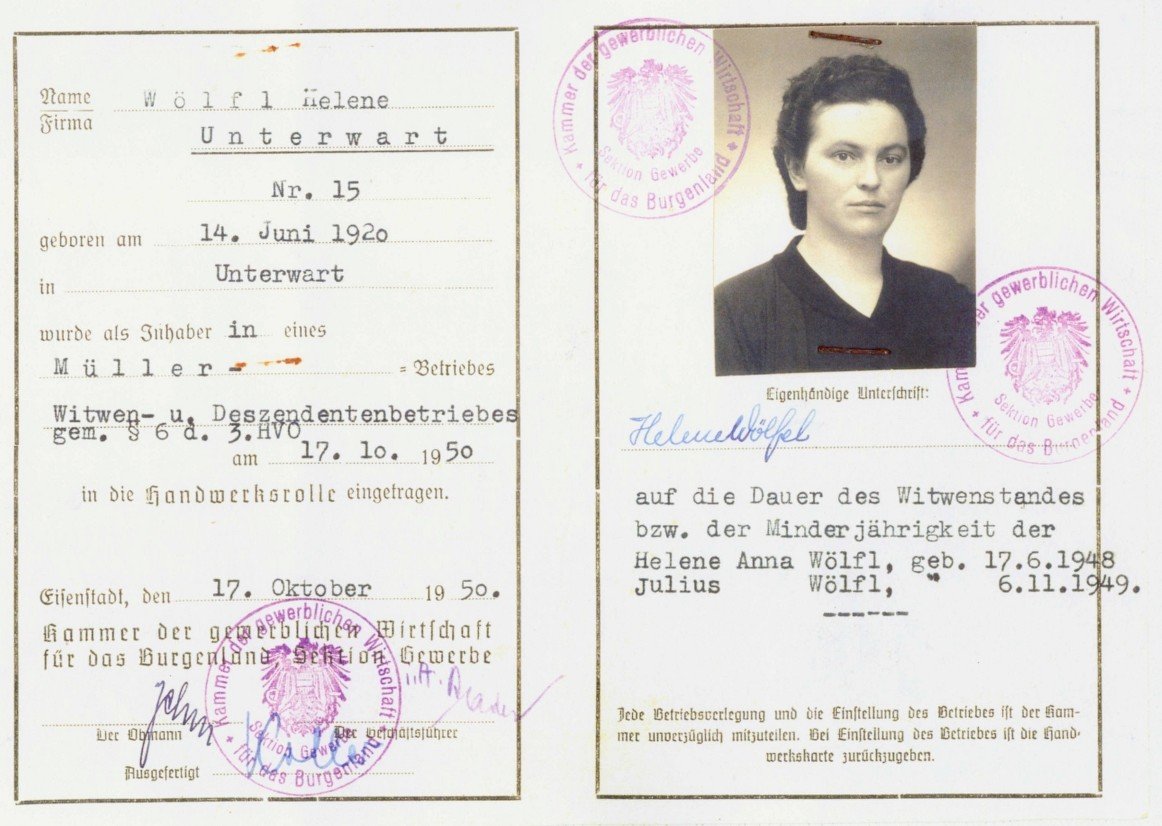 Name W ö l f l Helene
Firma
U n t e r w a r t
Nr. 15
geboren am 14. Juni 192o
in Unterwart
wurde als Inhaber in eines
M ü l l e r - = Betriebes
Witwen- u. Deszendentenbetriebes
gem. § 6 d. 3.HVO
am 17. 1o. 1950
in die Handwerksrolle eingetragen.
Eisenstadt, den 17. Oktober 1950.
Kammer der gewerblichen Wirtschaft
für das Burgenland Sektion Gewerbe
Der Obmann Der Geschäftsführer
Ausgefertigt
Kammer der gewerblichen Wirtschaft
Sektion Gewerbe
* für das Burgenland *
Kammer der gewerblichen Wirtschaft
Sektion Gewerbe
* für das Burgenland *
Kammer der gewerblichen Wirtschaft
Sektion Gewerbe
* für das Burgenland *
Eigenhändige Unterschrift:
Helene Wölfel
auf die Dauer des Witwenstandes
bzw. der Minderjährigkeit der
Helene Anna Wölfl, geb. 17.6.1948
Julius Wölfl, " 6.11.1949.
Jede Betriebsverlegung und die Einstellung des Betriebes ist der Kam-
mer unverzüglich mitzuteilen. Bei Einstellung des Betriebes ist die Hand-
werkskarte zurückzugeben.